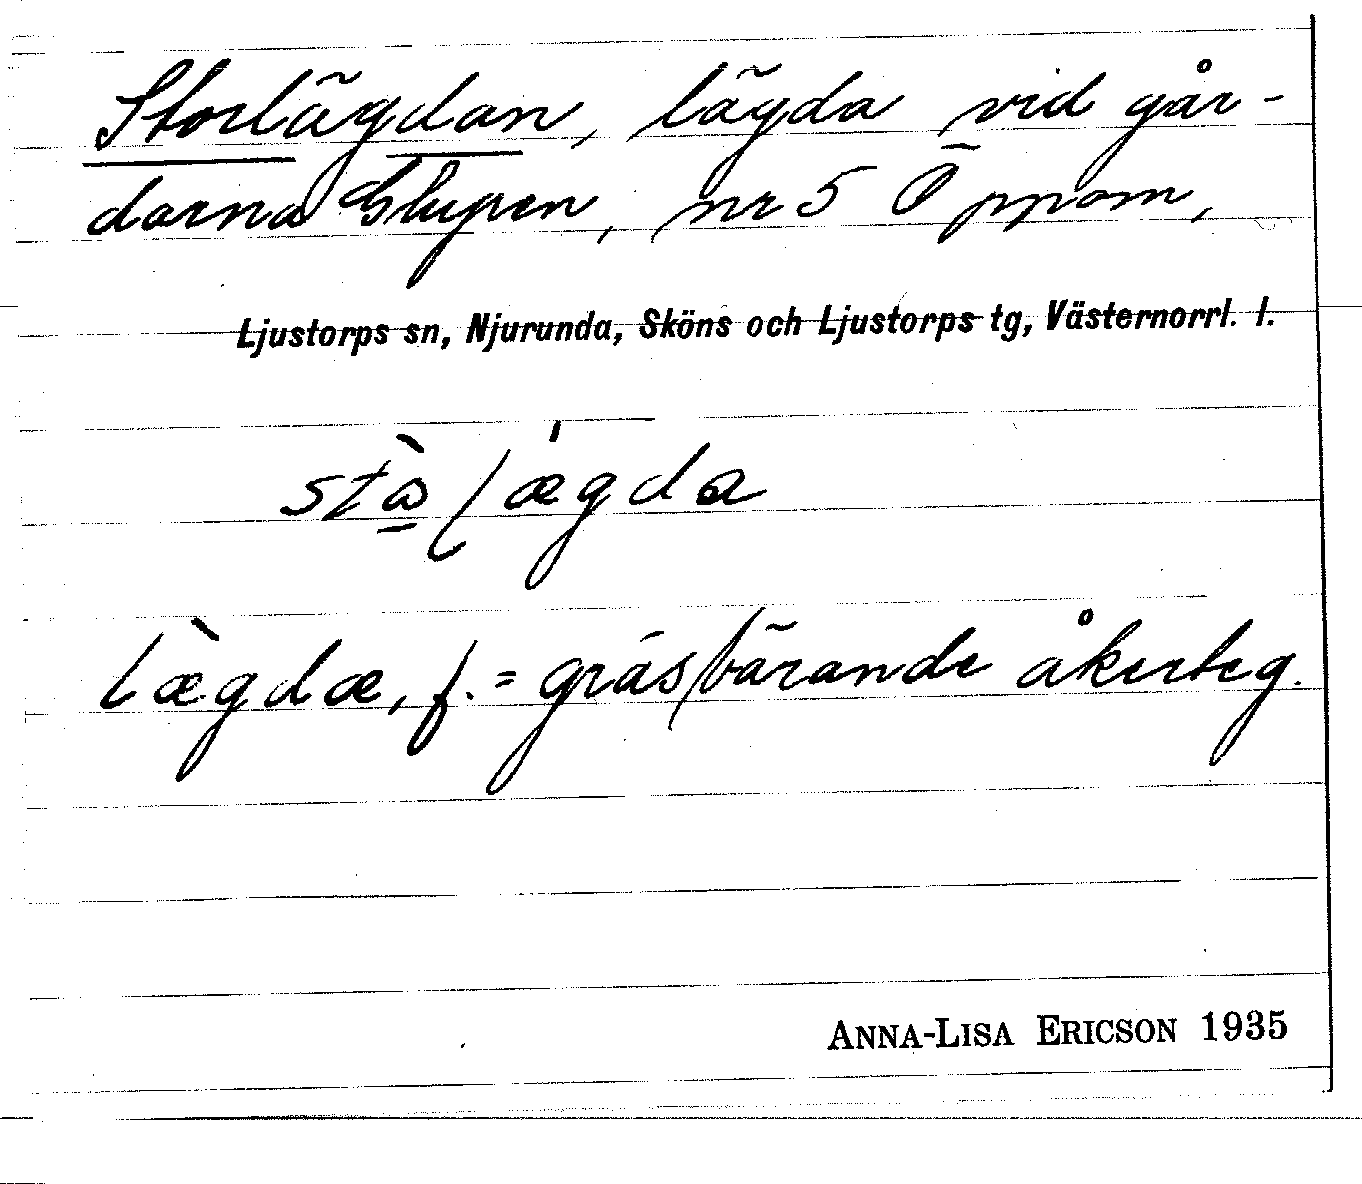 Storlägdan, lägda vid går-
darna Slupen, nr 5 Öppom,
Ljustorps sn, Njurunda, Sköns och Ljustorps tg, Västernorrl. l.
lægdæ, f. = gräsbärande åkerteg.
ANNA-LISA ERICSON 1935